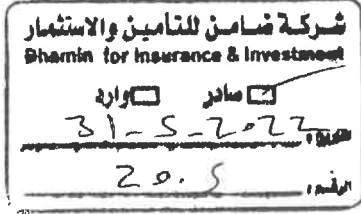 شركة ضامن للتأمين والاستثمار
Dhamin for Insurance & Investment
صادر وارد
التاريخ: 31-5-2022
الرقم: